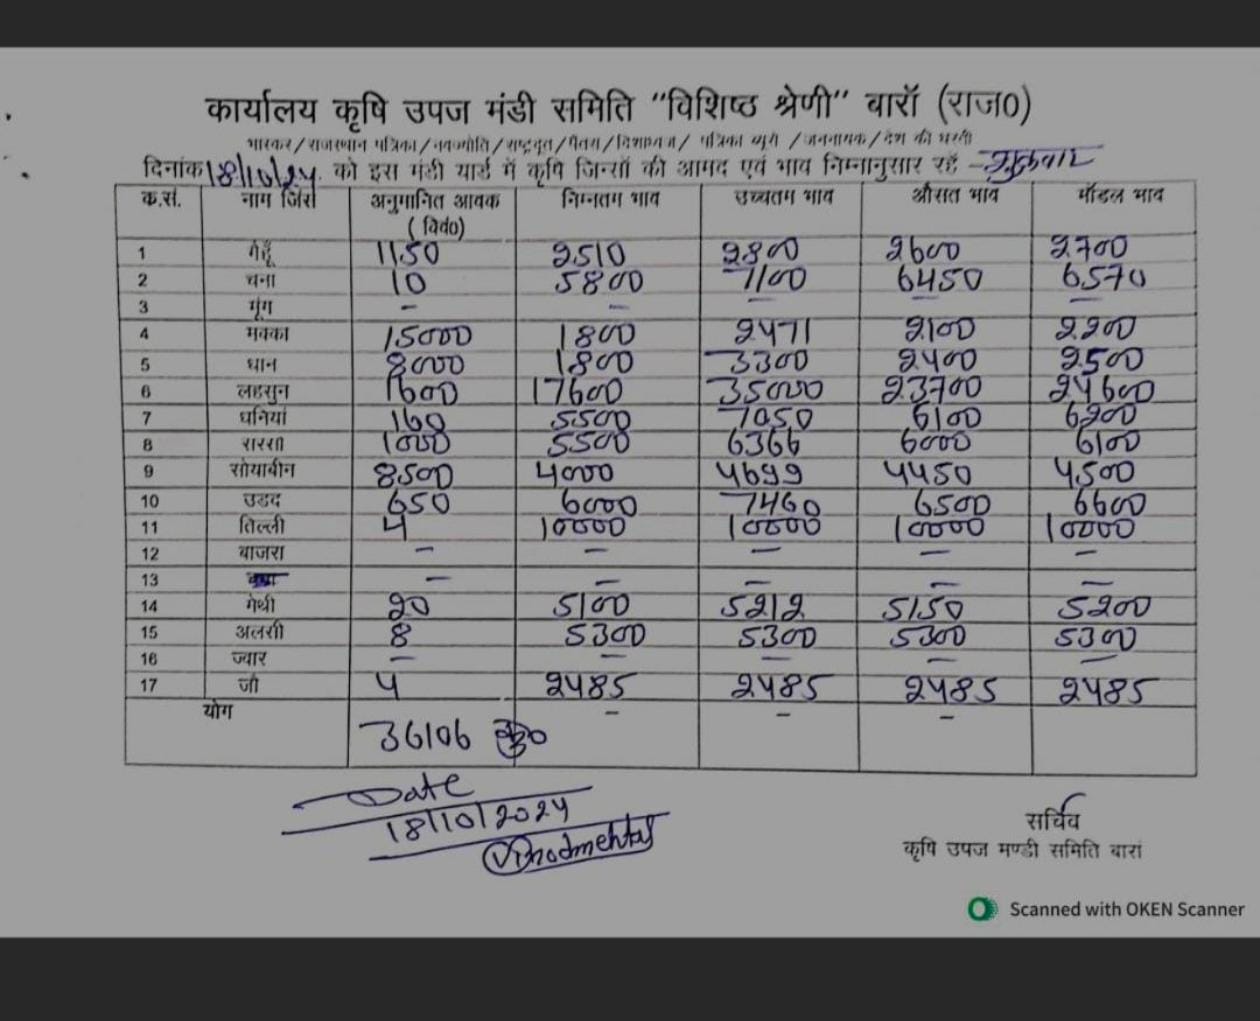 कार्यालय कृषि उपज मंडी समिति "विशिष्ठ श्रेणी" बारॉ (राज0)
भास्कर/राजस्थान पत्रिका/नवज्योति/राष्ट्रदूत/ /जननायक/देश की धरती
दिनांक 18/10/24. को इस मंडी यार्ड में कृषि जिन्सों की आमद एवं भाव निम्नानुसार रहें - शुक्रवार
क.सं. नाम जिंस अनुमानित आवक (क्विं0) निम्नतम भाव उच्चतम भाव औसत भाव मॉडल भाव
1 गेहूँ 1150 2510 2800 2600 2700
2 चना 10 5800 7100 6450 6570
3 मूंग - - - - -
4 मक्का 15000 1800 2471 2100 2200
5 धान 8000 1800 3300 2400 2500
6 लहसुन 1600 17600 35000 23700 24600
7 धनियां 160 5500 7050 6100 6200
8 सरसों 1000 5500 6366 6000 6100
9 सोयाबीन 8500 4000 4699 4450 4500
10 उडद 650 6000 7460 6500 6600
11 तिल्ली 4 10000 10000 10000 10000
12 बाजरा - - - - -
13 - - - - -
14 मेथी 20 5100 5212 5150 5200
15 अलसी 8 5300 5300 5300 5300
16 ज्वार - - - - -
17 जौ 4 2485 2485 2485 2485
योग 36106 - - -
Date
18/10/2024
सचिव
कृषि उपज मण्डी समिति बारां
Scanned with OKEN Scanner